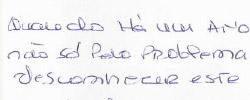 Quando Há um Ano
não só Pelo Problema
desconhecer este